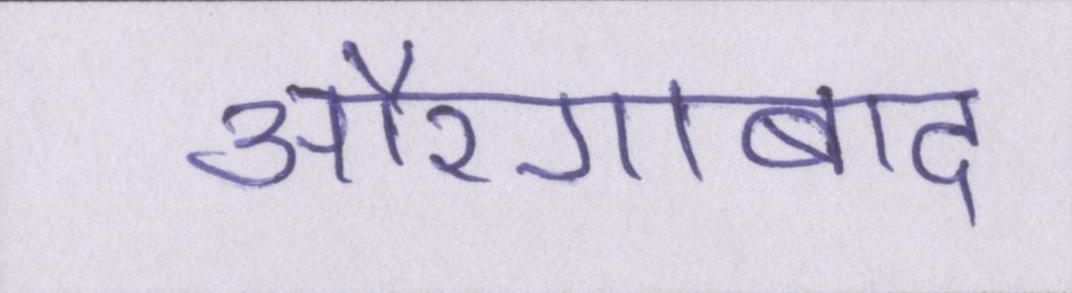 औरगाबाद